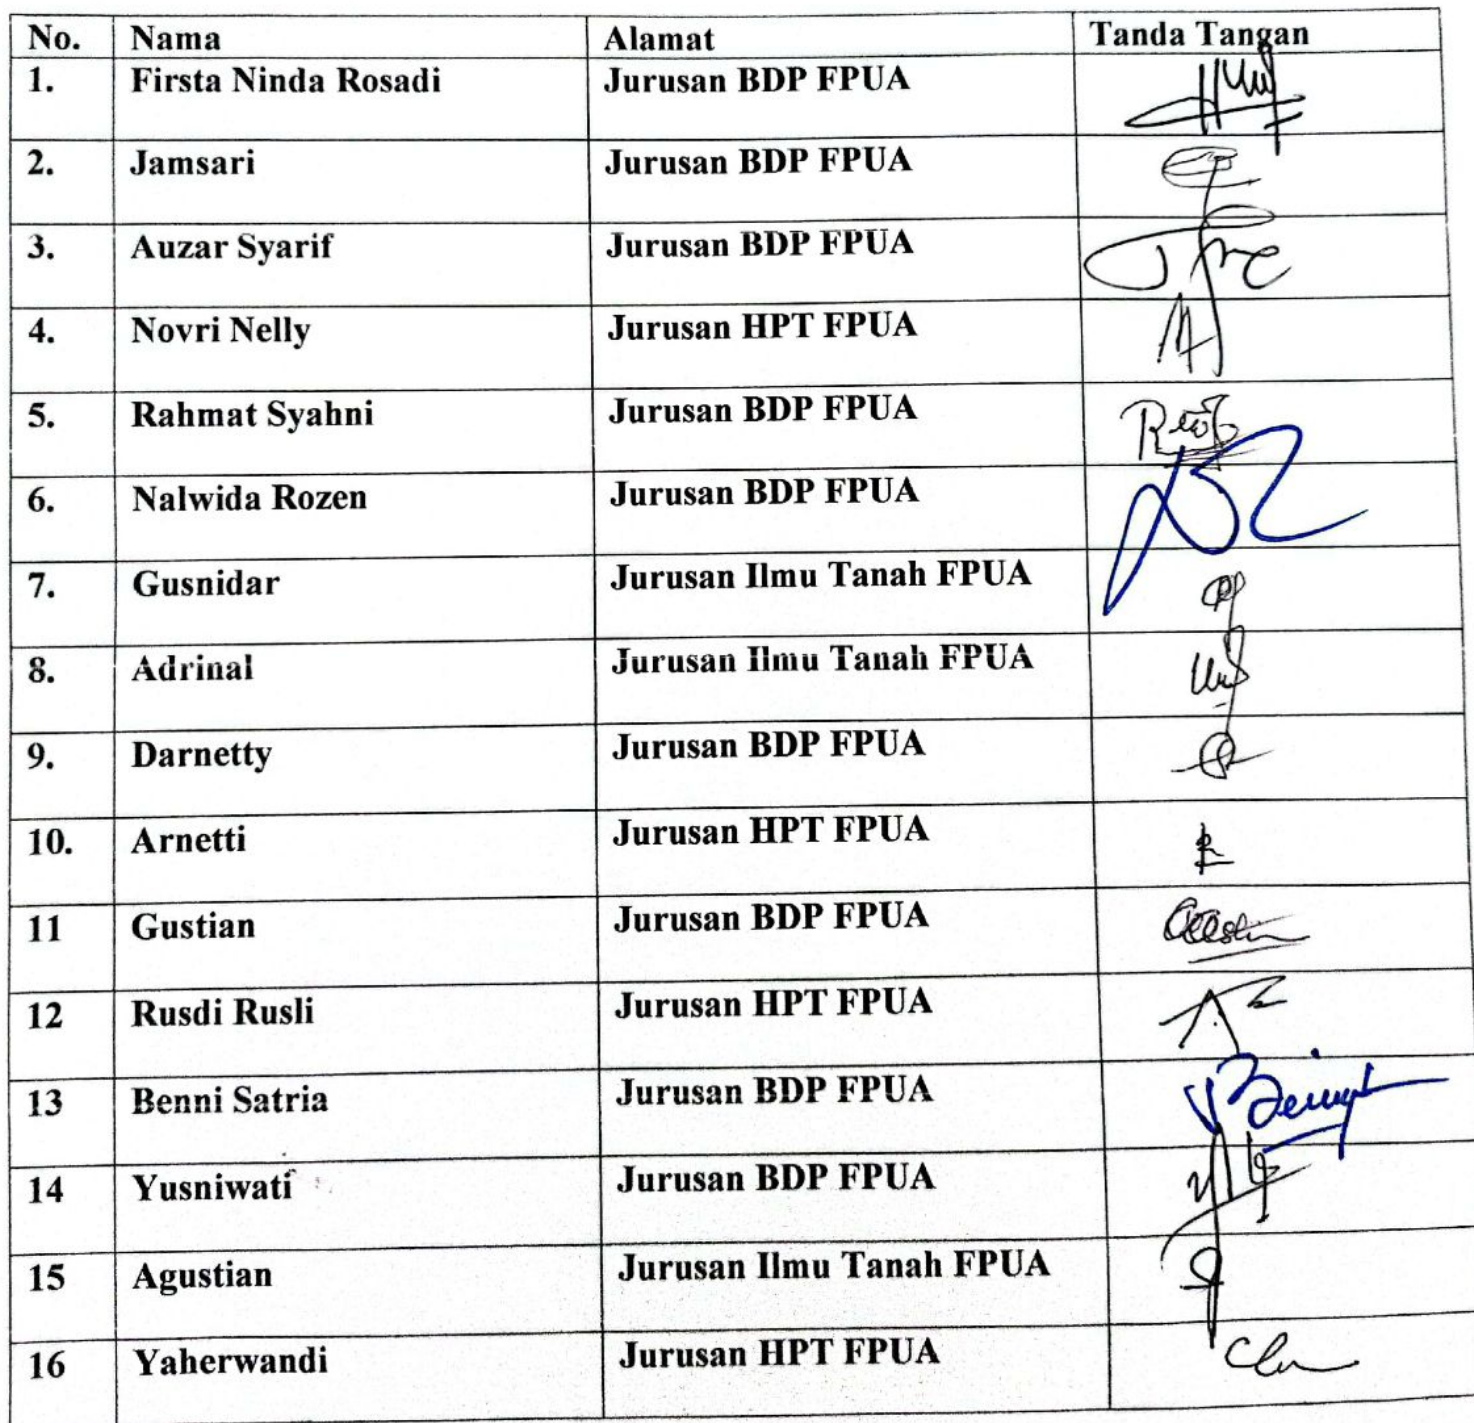 No. Nama Alamat Tanda Tangan
1. Firsta Ninda Rosadi Jurusan BDP FPUA
2. Jamsari Jurusan BDP FPUA
3. Auzar Syarif Jurusan BDP FPUA
4. Novri Nelly Jurusan HPT FPUA
5. Rahmat Syahni Jurusan BDP FPUA
6. Nalwida Rozen Jurusan BDP FPUA
7. Gusnidar Jurusan Ilmu Tanah FPUA
8. Adrinal Jurusan Ilmu Tanah FPUA
9. Darnetty Jurusan BDP FPUA
10. Arnetti Jurusan HPT FPUA
11 Gustian Jurusan BDP FPUA
12 Rusdi Rusli Jurusan HPT FPUA
13 Benni Satria Jurusan BDP FPUA
14 Yusniwati Jurusan BDP FPUA
15 Agustian Jurusan Ilmu Tanah FPUA
16 Yaherwandi Jurusan HPT FPUA